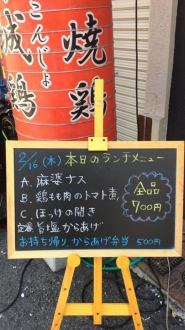 こんじょ
焼鶏
成鶏
2/16 (木) 本日のランチメニュー
A. 麻婆ナス
B. 鶏もも肉のトマト煮
C. ほっけの開き
定番 旨塩からあげ
お持ち帰り からあげ弁当 500円
全品
700円